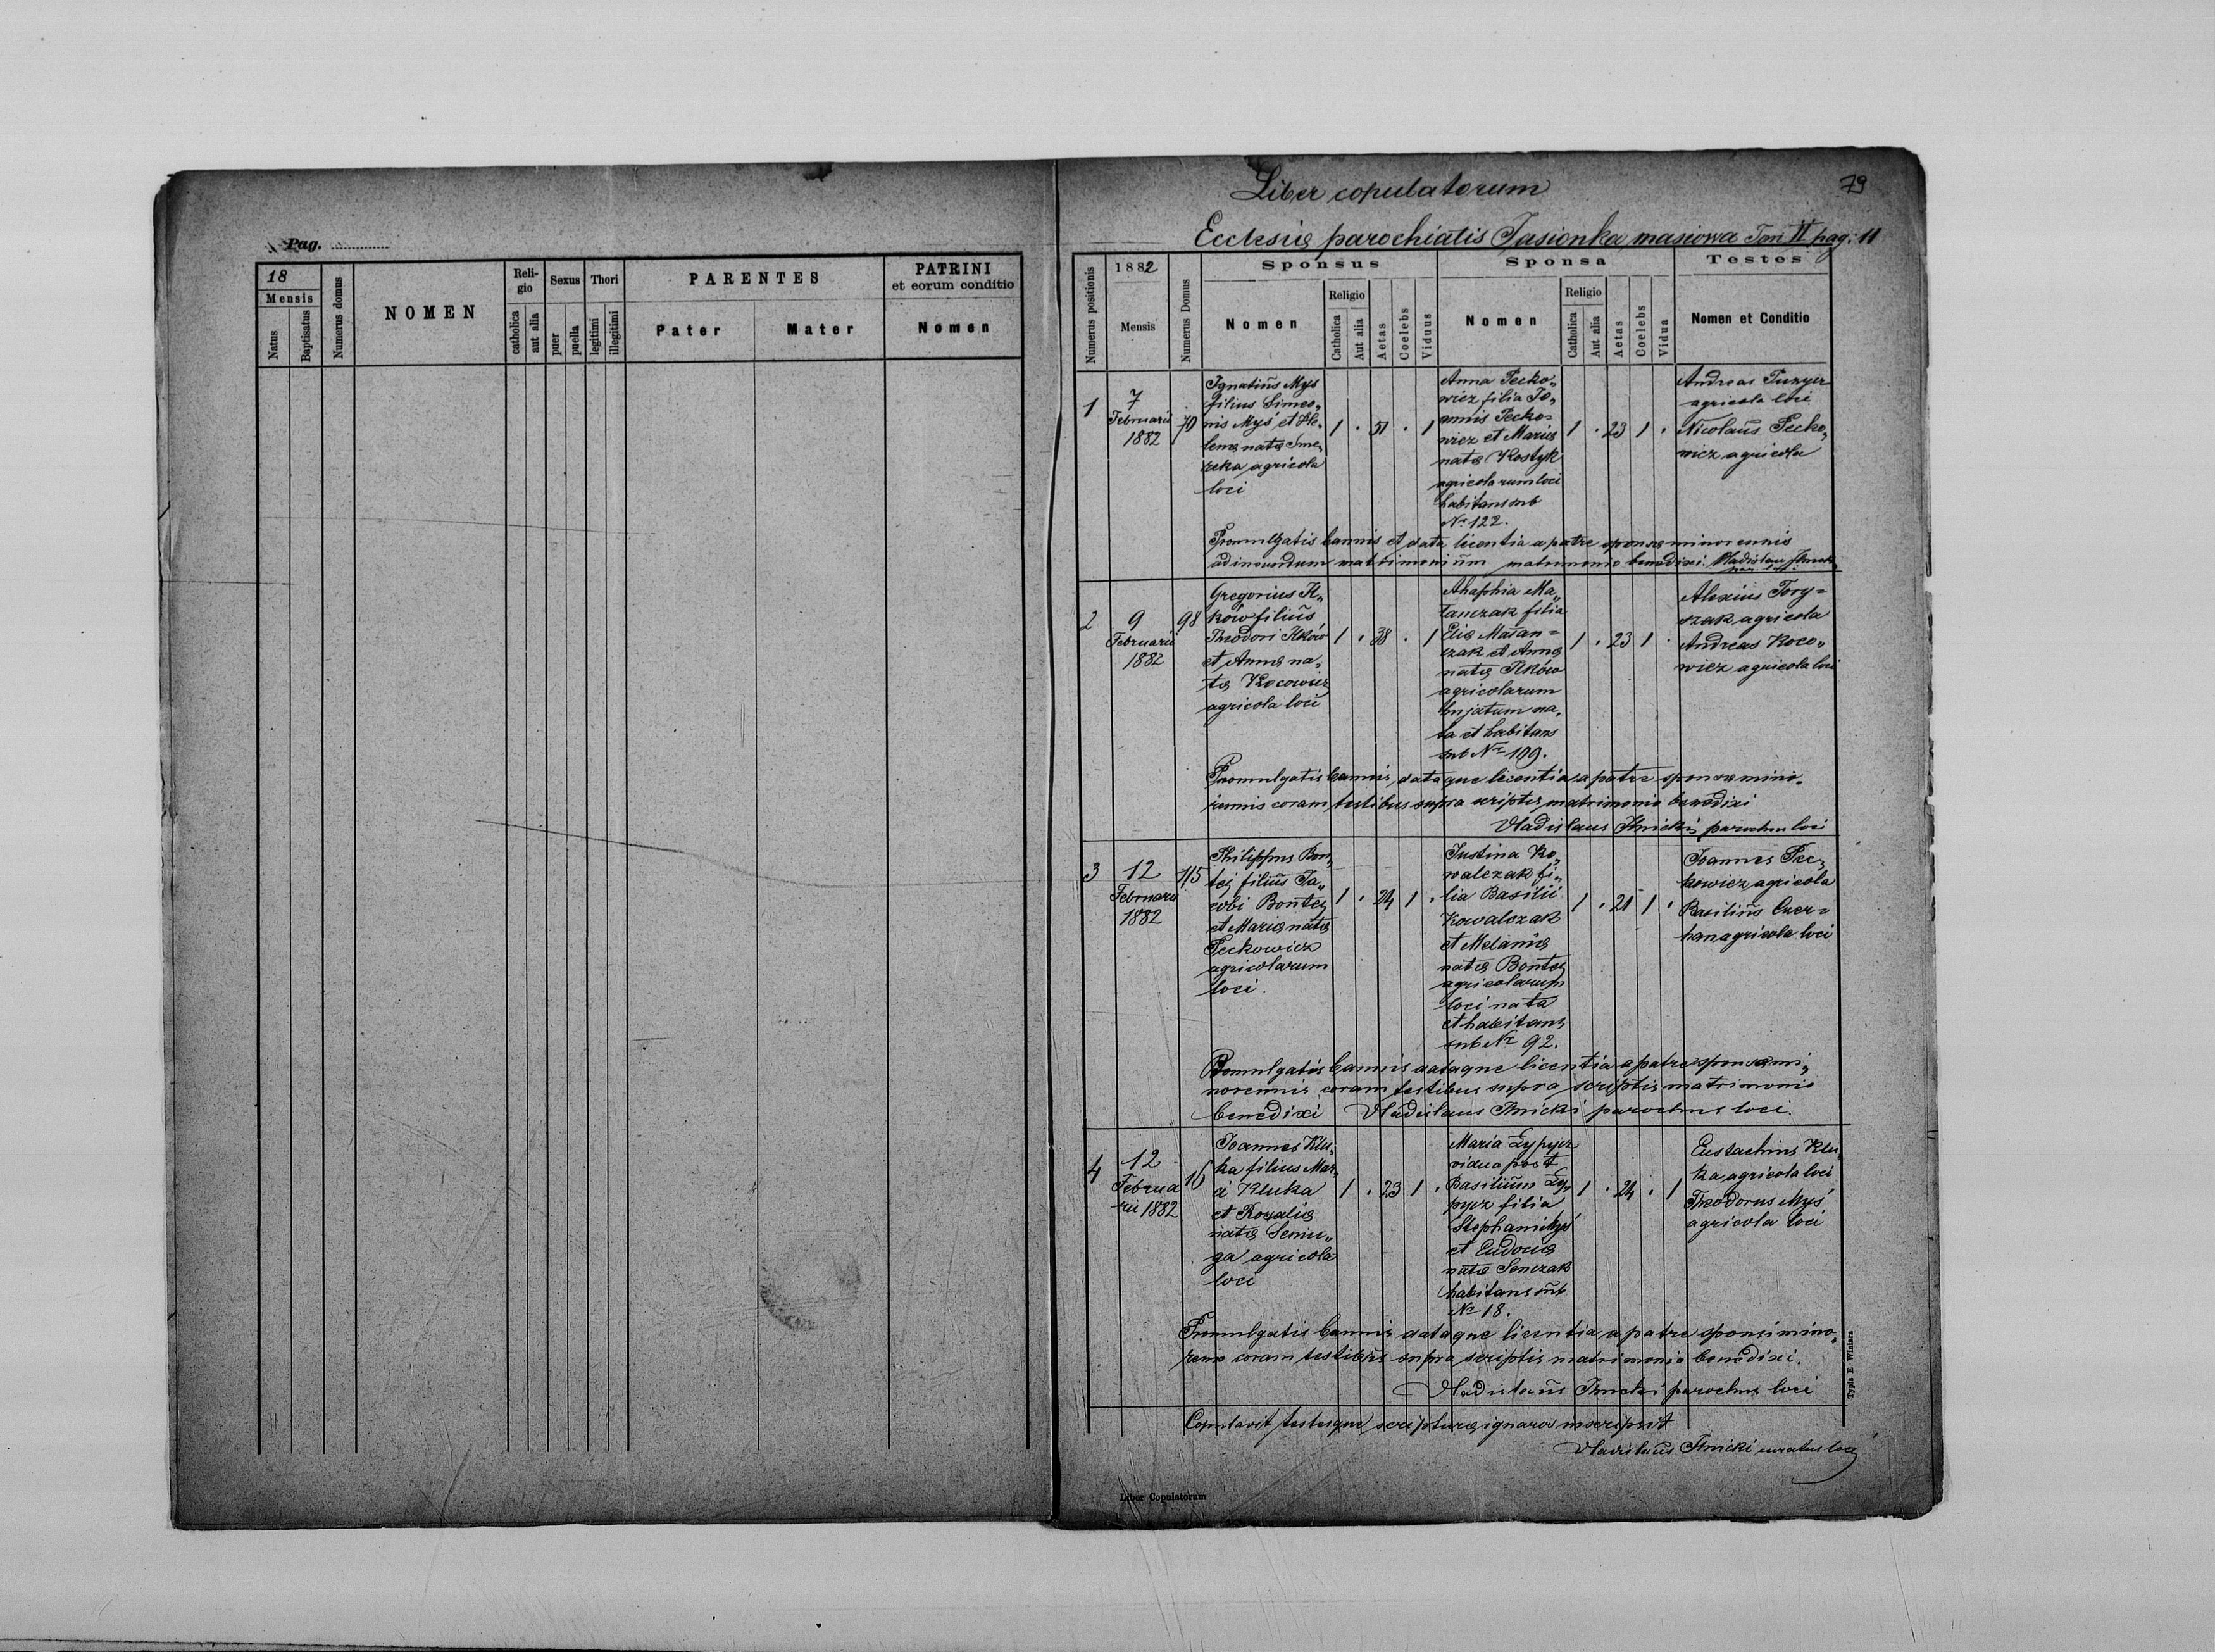 Pag.
18
Mensis
Natus
Baptisatus
Numerus domus
NOMEN
Reli-
gio
catholica
aut alia
Sexus
puer
puella
Thori
legitimi
illegitimi
PARENTES
Pater
Mater
PATRINI
et eorum conditio
Nomen
79
Liber copulatorum
Ecclesiæ parochialis Jasionka masiowa Tom II pag: 11
Numerus positionis
1882
Mensis
Numerus Domus
Sponsus
Nomen
Religio
Catholica
Aut alia
Aetas
Coelebs
Viduus
Sponsa
Nomen
Religio
Catholica
Aut alia
Aetas
Coelebs
Vidua
Testes
Nomen et Conditio
1
7
Februarii
1882
70
Ignatius Mys
filius Simeo„
nis Mys et He„
lenæ natæ Sme„
reka agricola
loci
1 . 51 . 1
Anna Pecko„
wicz filia Jo„
annis Pecko=
wicz et Mariæ
natæ Kostyk
agricolarum loci
habitans sub
Nr 122.
1 . 23 1 .
Andreas
agricola loci
Nicolaus Pecko„
wicz agricola
Promulgatis bannis et data licentia a patre sponsæ minorennis
ad ineundum matrimonium matrimonio benedixi.
2
9
Februarii
1882
98
Gregorius Il„
ków filius
Theodori Ilków
et Annæ na„
tæ Kocowicz
agricola loci
1 . 38 . 1
Ahaphia Ma„
tanczak filia
Eliæ Matan=
czak et Annæ
natæ Ilków
agricolarum
hujatum na„
ta et habitans
sub Nr 109.
1 . 23 1 .
Alexius Tory=
szak agricola
Andreas Koco„
wicz agricola loci
Promulgatis bannis, dataque licentia a patre sponsæ mino„
rennis coram testibus supra scriptis matrimonio benedixi
Vladislaus Ilnicki parochus loci
3
12
Februarii
1882
115
Philippus Bon„
tej filius Ja„
cobi Bontej
et Mariæ natæ
Peckowicz
agricolarum
loci.
1 . 24 1 .
Justina Ko„
walczak fi„
lia Basilii
Kowalczak
et Melaniæ
natæ Bontej
agricolarum
loci nata
et habitans
sub Nr 92.
1 . 21 1 .
Joannes Pec„
kowicz agricola
Basilius Czer=
han agricola loci
Promulgatis bannis dataque licentia a patre sponsæ mi„
norennis coram testibus supra scriptis matrimonio
benedixi Vladislaus Ilnicki parochus loci.
4
12
Februa
rii 1882
16
Joannes Klu„
ka filius Mar„
Kluka
et Rosaliæ
natæ
agricola
loci
1 . 23 1 .
Maria Łypycz
vidua post
Basilium Ły„
pycz filia
Stephani Myś
et Eudociæ
natæ Senczak
habitans sub
Nr 18.
1 . 24 . 1
Eustachius Klu„
ka agricola loci
Theodorus Myś
agricola loci
Promulgatis bannis dataque licentia a patre sponsi mino„
rennis coram testibus supra scriptis matrimonio benedixi.
Vladislaus Ilnicki parochus loci
Copulavit testesque scripturæ ignaros inscripsit
Vladislaus Ilnicki curatus loci
Typis E. Winiarz
Liber Copulatorum